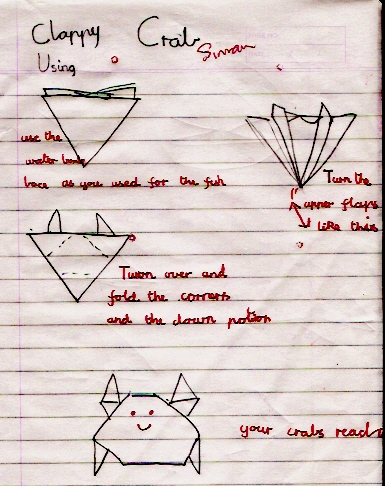 Clappy Crab
Simran
Using
use the
water bomb
base as you used for the fish
Turn the
upper flaps
like this
Turn over and
fold the corners
and the down potion
your crabs read